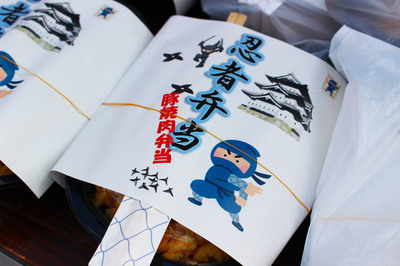 忍者弁当
豚焼肉弁当